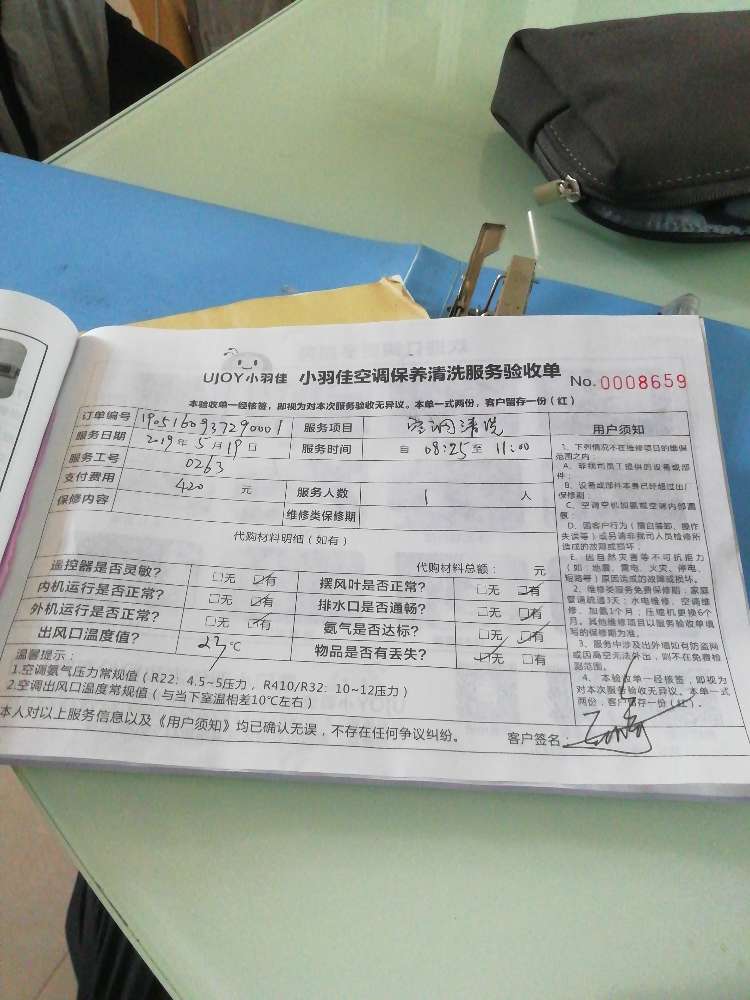 UJOY小羽佳 小羽佳空调保养清洗服务验收单 No. 0008659
本验收单一经核签，即视为对本次服务验收无异议。本单一式两份，客户留存一份（红）
订单编号 1905160937290001 服务项目 空调清洗
服务日期 2019年5月19日 服务时间 自 08:25 至 11:00
服务工号 0263
支付费用 420 元 服务人数 1 人
保修内容 维修类保修期
代购材料明细（如有）
代购材料总额： 元
遥控器是否灵敏？ 口无 口有 摆风叶是否正常？ 口无 口有
内机运行是否正常？ 口无 口有 排水口是否通畅？ 口无 口有
外机运行是否正常？ 口无 口有 氨气是否达标？ 口无 口有
出风口温度值？ 23 ℃ 物品是否有丢失？ 口无 口有
温馨提示：
1.空调氨气压力常规值（R22：4.5~5压力，R410/R32：10~12压力）
2.空调出风口温度常规值（与当下室温相差10℃左右）
本人对以上服务信息以及《用户须知》均已确认无误，不存在任何争议纠纷。 客户签名：
用户须知
1、下列情况不在维修项目的维保
范围之内：
A、非我司员工提供的设备或部
件；
B、设备或部件本身已经超过出厂
保修期
C、空调空机加氨或空调内部置
氨；
D、因客户行为（擅自装卸、操作
失误等）或另请非我司人员检修所
造成的故障或损坏；
E、因自然灾害等不可抗拒力
（如：地震、雷电、火灾、停电、
短路等）原因造成的故障或损坏。
2、维修类服务免费保修期：家庭
管道疏通3天；水电维修、空调维
修、加氨1个月；压缩机更换6个
月。其他维修项目以服务验收单填
写的保修期为准。
3、服务中涉及出外墙如有防盗网
或因高空无法外出，则不在免费检
查范围。
4、本验收单一经核签，即视为
对本次服务验收无异议。本单一式
两份，客户留存一份（红）。